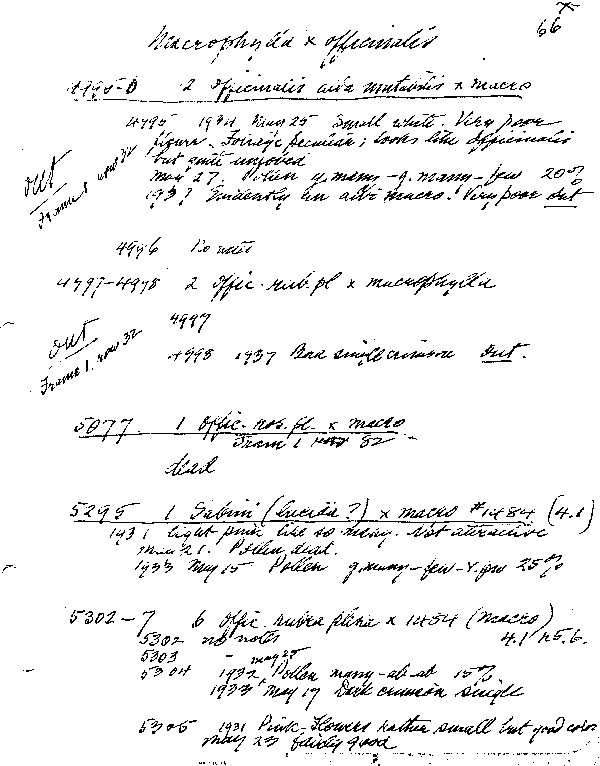 66
Macrophylla x officinalis
4995-6 2 Officinalis alba mutabilis x macro
4995 1934 May 25 Small white. Very poor
figure. Foliage peculiar; looks like officinalis
but quite
May 27. Pollen g. many - g. many - few 20%
1937 Evidently an albi macro. Very poor out
out
Frame 1 row 32
4996 No notes
4997-4998 2 Offic. rub. pl x macrophylla
4997
out
Frame 1, row 32
4998 1937 Bad single crimson Out.
5077 1 Offic. ros. pl. x macro
Frame 1 row 32
dead
5295 1 Sabini (lucida?) x macro #1484 (4.1)
1931 light pink like so many. Not attractive
May 21. Pollen dead.
1933 May 15 Pollen g. many - few - v. few 25%
5302-7 6 Offic. rubra plena x 1484 (macro)
5302 no notes 4.1
5303 -
5304 1932 May 25 Pollen many - ab - ab 15%
1933 May 17 Dark crimson single
5305 1931 Pink - Flowers rather small but good color
May 23 fairly good